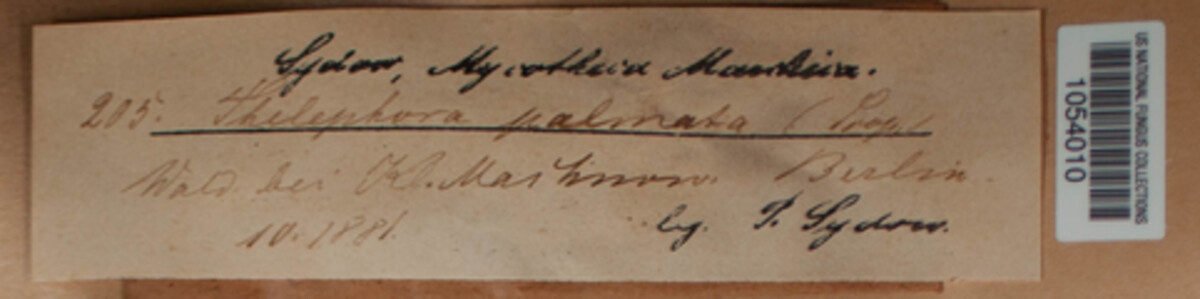 Sydow, Mycotheca Marchica.
205. Thelephora palmata (Scop.)
Wald bei Kl. Machnow. Berlin.
10. 1881.
leg. P. Sydow.
US NATIONAL FUNGUS COLLECTIONS
1054010